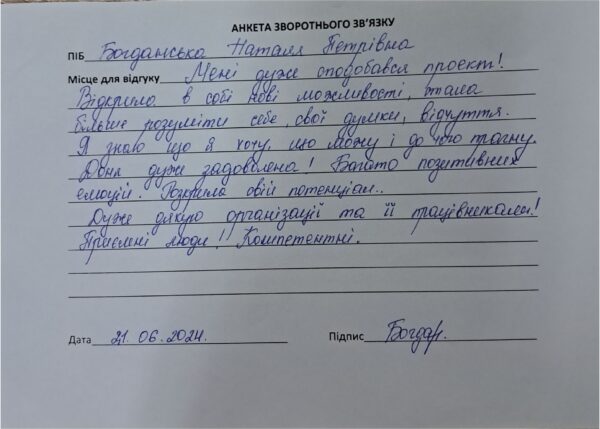 АНКЕТА ЗВОРОТНЬОГО ЗВ’ЯЗКУ
ПІБ Богданська Наталя Петрівна
Місце для відгуку Мені дуже сподобався проєкт!
Відкрила в собі нові можливості, стала
більше розуміти себе, свої думки, відчуття.
Я знаю що я хочу, що можу і до чого прагну.
Доня дуже задоволена! Багато позитивних
емоцій. Розкрила свій потенціал..
Дуже дякую організації та її працівникам!
Приємні люди!! Компетентні.
Дата 21.06.2024. Підпис